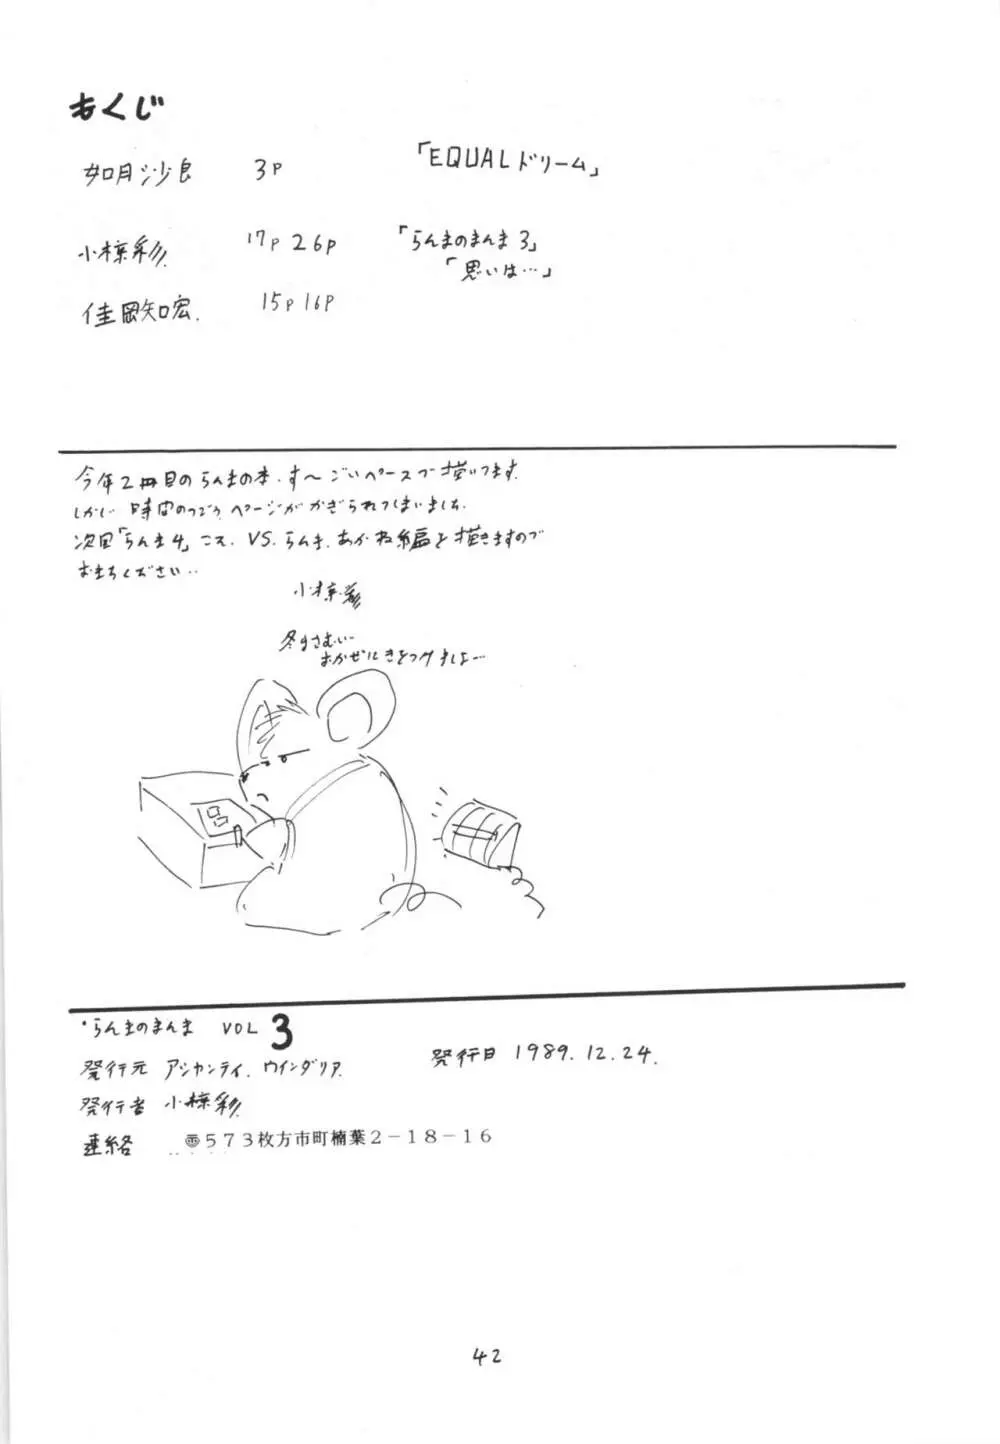 もくじ
如月沙良 3P 「EQUALドリーム」
小椋彩 17P 26P 「らんまのまんま3」
「思いは…」
佳岡知宏. 15P 16P
今年2冊目のらんまの本.す〜ごいペースで描いてます.
しかし時間のつごう.ページがかぎられてしまいました.
次回「らんま4」こそ.VS.らんま.あかね編を描きますので
おまちください‥
小椋彩
冬はさむい…
おかぜにきをつけましょ…
・らんまのまんま VOL 3
発行元 アシャンティ.ウインダリア. 発行日 1989.12.24.
発行者 小椋彩.
連絡 〠573枚方市町楠葉2−18−16
42